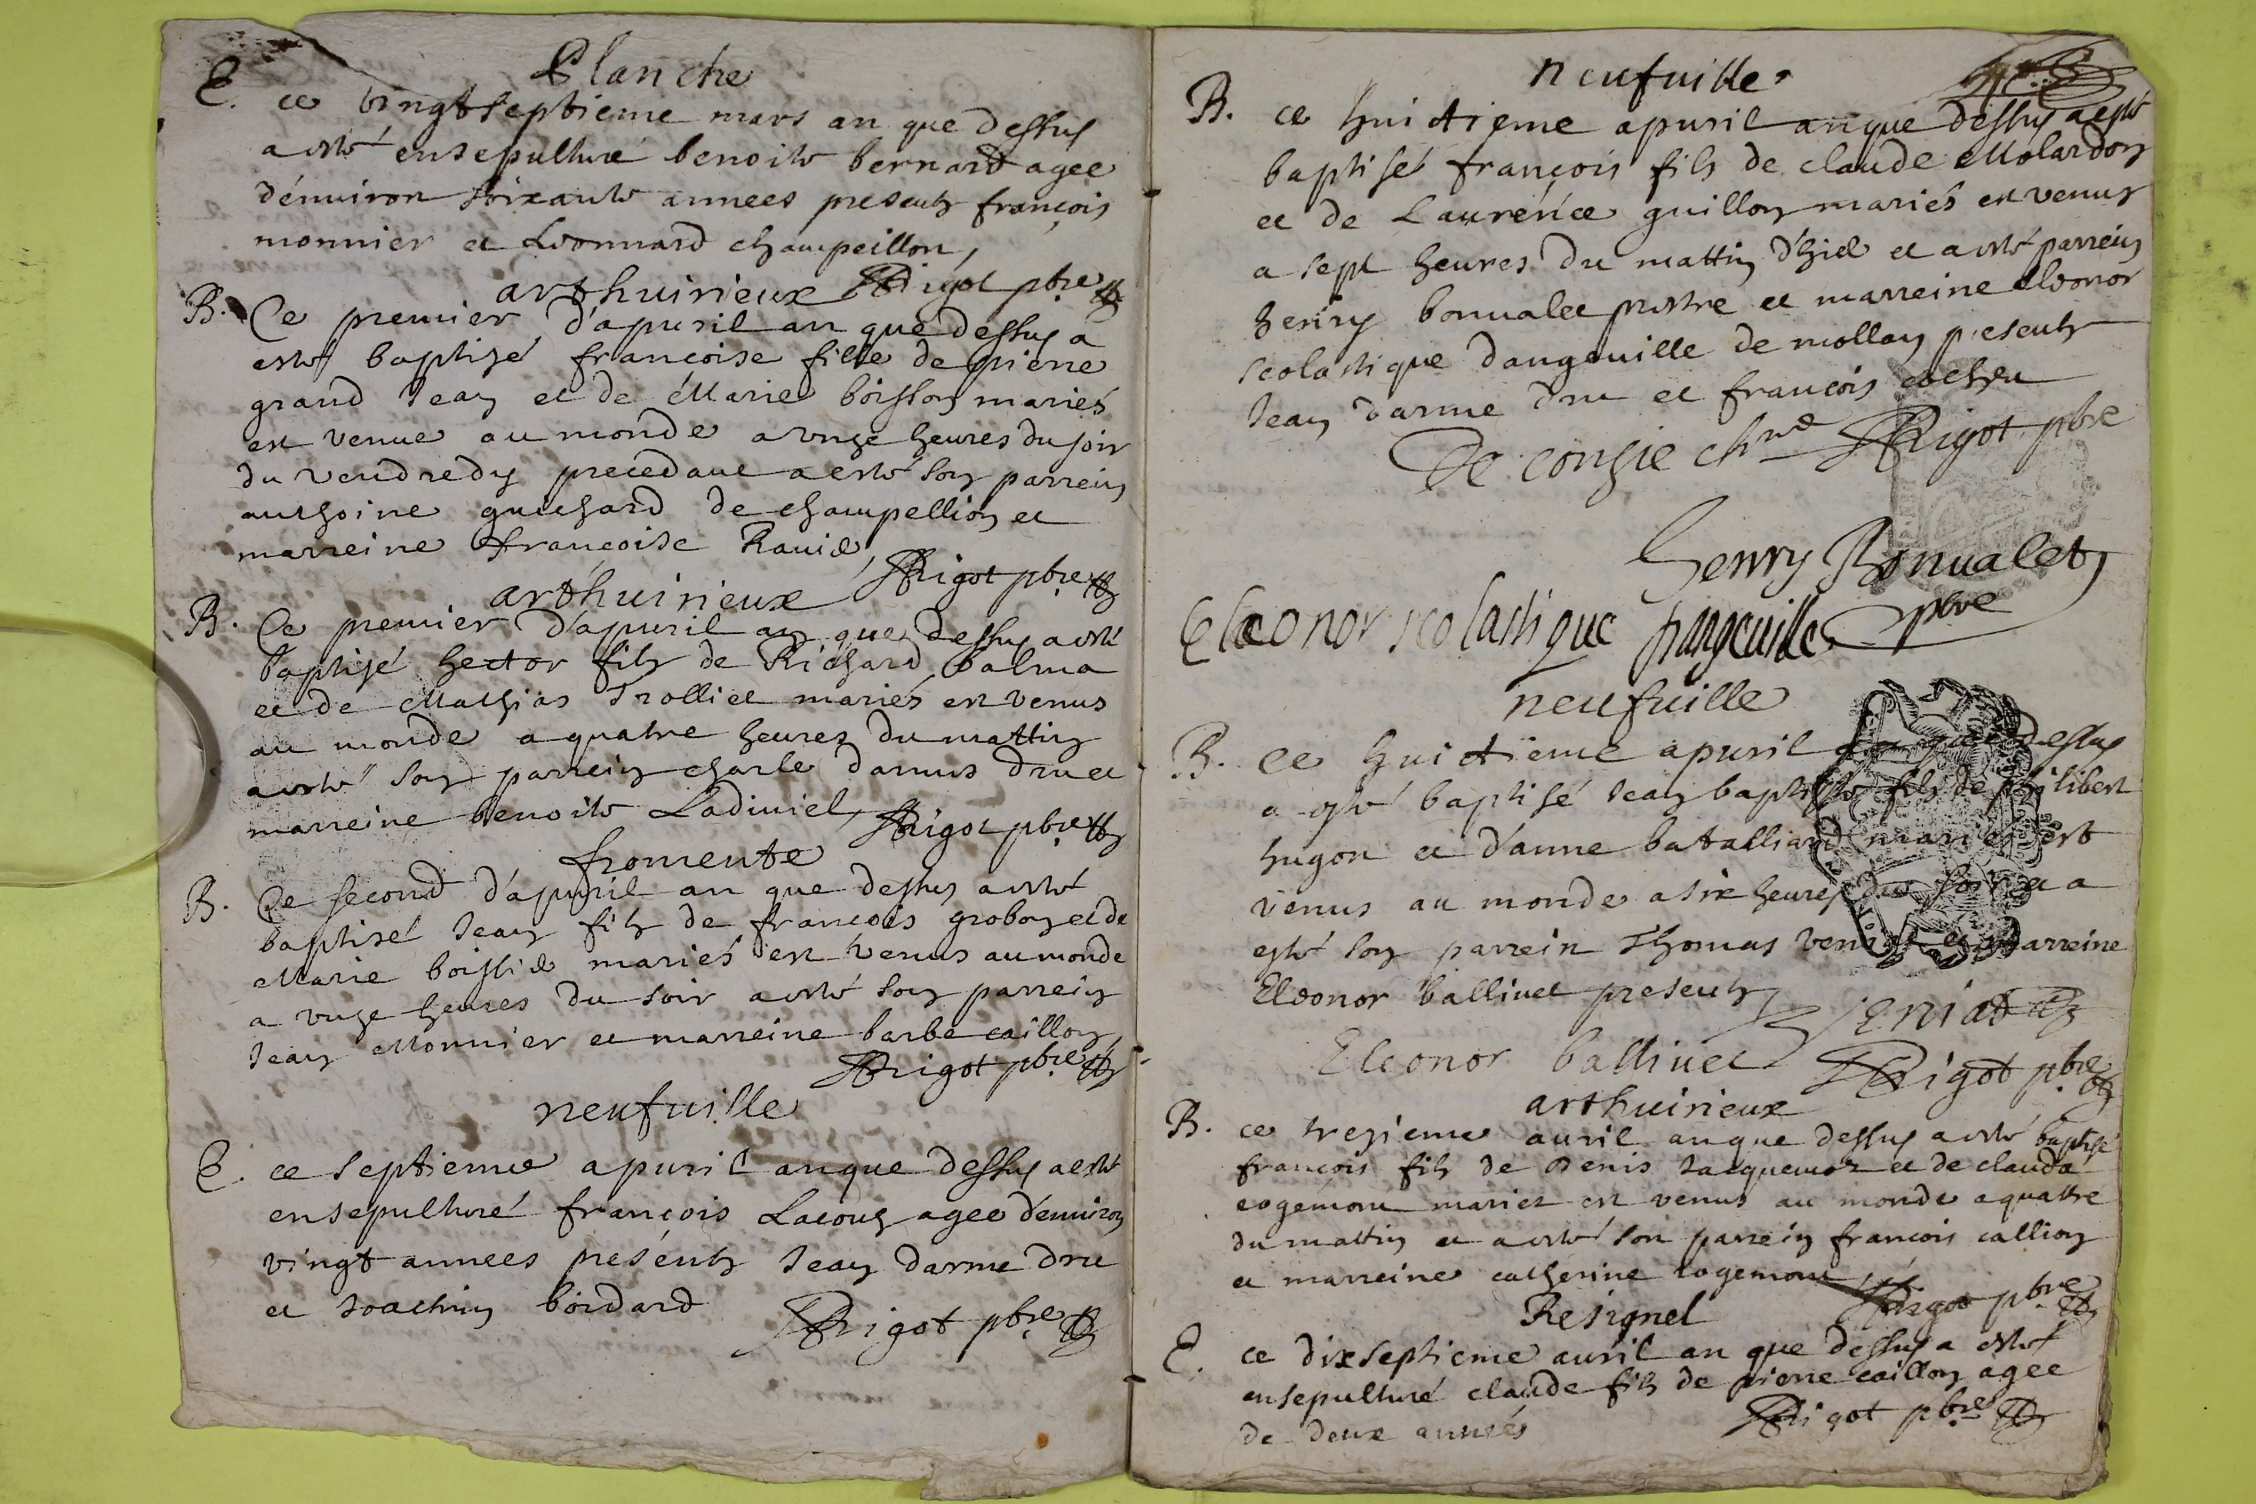 Planche
E. ce vingtseptieme mars an que dessus
a esté ensepulturé benoite bernard agee
d'enuiron soixante annees presents françois
monnier et Leonnard champeillon,
arthuirieux Rigot pbre
B. Ce premier d'apuril an que dessus a
esté baptizé francoise fille de pierre
grand Jean et de Marie boisson mariés
est venue au monde a unze heures du soir
du vendredy precedant a esté son parrein
anthoine guichard de champellion et
marreine francoise Rauie
Rigot pbre
arthuirieux
B. Ce premier d'apuril an que dessus a esté
baptizé hector fils de Richard balma
et de Mathias Trolliet mariés est venus
au monde a quatre heures du mattin
a esté son parrein charle darmes dru et
marreine benoite Ladiuiel Rigot pbre
fromente
B. Ce second d'apuril an que dessus a esté
baptisé Jean fils de francois grobon et de
Marie boissie mariés est venus au monde
a unze heures du soir a esté son parrein
Jean Monnier et marreine barbe caillon
Rigot pbre
neufuille
E. ce septieme apuril an que dessus a esté
ensepulturé françois Lacoux agee d'enuiron
vingt annees presents Jean darme dru
et Joachim boirdard Rigot pbre
neufuille
B. ce huictieme apuril an que dessus a esté
baptisé françois fils de claude Molardon
et de Laurence guillon mariés est venus
a sept heures du mattin d'hier et a esté parrein
henry bonualet prestre et marreine Eleonor
scolastique dangeuille de mollan presents
Jean darme dru et francois cochon
De consie ch Rigot pbre
henry Bonualet
pbre
Eleonor scolastique dangeuille
neufuille
B. ce huictieme apuril an que dessus
a esté baptisé Jean baptiste fils de philibert
hugon et d'anne batalliard mariés est
venus au monde a six heures du soir et a
esté son parrein Thomas Veniat et marreine
Eleonor balliuet presents
Veniat
Eleonor balliuet Rigot pbre
arthuirieux
B. ce tresieme auril an que dessus a esté baptisé
francois fils de Denis Jacquemoz et de clauda
cogemont mariez est venus au monde a quattre
du mattin et a esté son parrein francois callion
et marreine catherine cogemont
Rigot pbre
Resignel
E. ce dixseptieme auril an que dessus a esté
ensepulturé claude fils de pierre caillon agee
de deux annees Rigot pbre